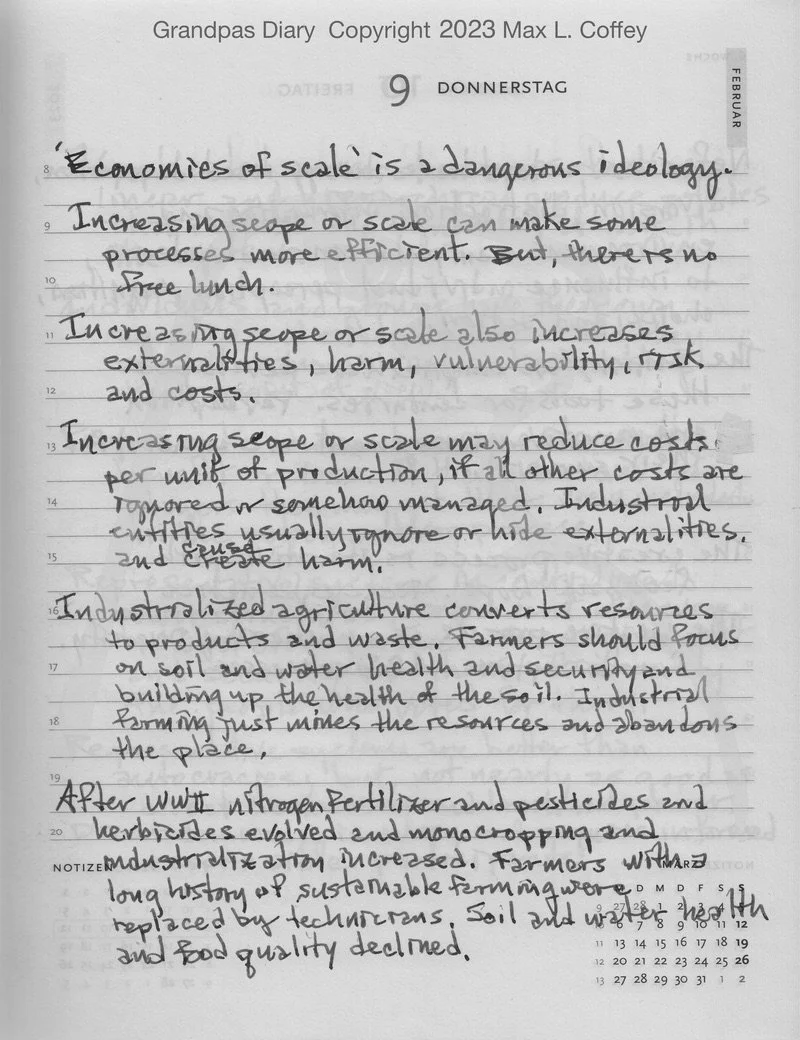 Grandpas Diary Copyright 2023 Max L. Coffey
9 DONNERSTAG
FEBRUAR
8 'Economies of scale' is a dangerous ideology.
9 Increasing scope or scale can make some
processes more efficient. But, there is no
10 free lunch.
11 Increasing scope or scale also increases
externalities, harm, vulnerability, risk
12 and costs.
13 Increasing scope or scale may reduce costs
per unit of production, if all other costs are
14 ignored or somehow managed. Industrial
entities usually ignore or hide externalities.
cause
15 and create harm.
16 Industrialized agriculture converts resources
to products and waste. Farmers should focus
17 on soil and water health and security and
building up the health of the soil. Industrial
18 farming just mines the resources and abandons
the place.
19
After WWII nitrogen fertilizer and pesticides and
20 herbicides evolved and monocropping and
NOTIZEN industrialization increased. Farmers with a
MÄRZ
long history of sustainable farming were
D M D F S S
replaced by technicians. Soil and water health
9 27 28 1 2 3 4
and food quality declined.
10 6 7 8 9 10 11 12
11 13 14 15 16 17 18 19
12 20 21 22 23 24 25 26
13 27 28 29 30 31 1 2